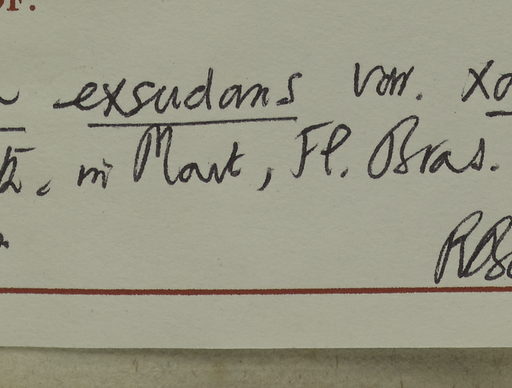 OF.
exsudans var. xa
in Mart, Fl. Bras.